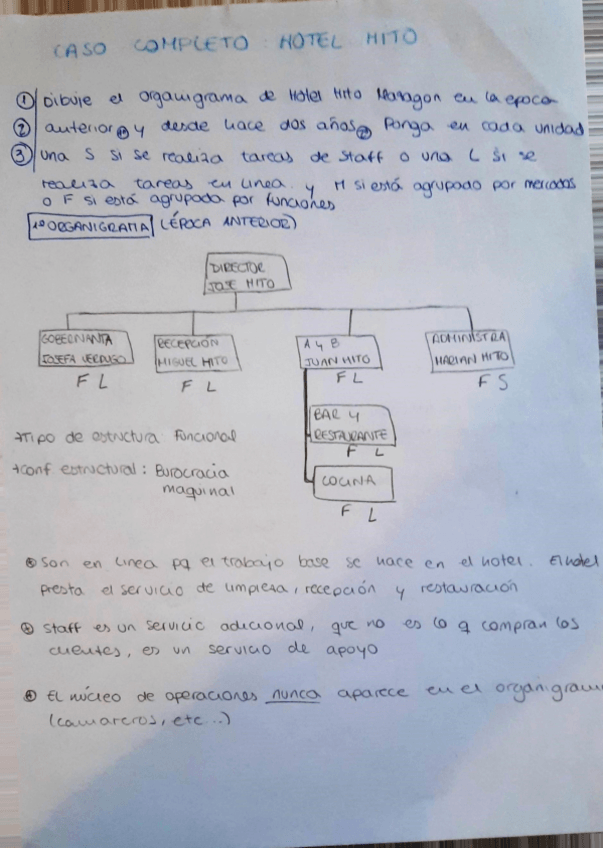 CASO COMPLETO: HOTEL MITO
① Dibuje el organigrama de Hotel Mito Managon en la epoca
② anterior ① y desde hace dos años ② Ponga en cada unidad
③ una S si se realiza tareas de staff o una L si se
realiza tareas en linea. y M si está agrupado por mercados
o F si está agrupada por funciones
1º ORGANIGRAMA (ÉPOCA ANTERIOR)
DIRECTOR
JOSE MITO
GOBERNANTA
JOSEFA VERDUGO
F L
RECEPCIÓN
MIGUEL MITO
F L
A Y B
JUAN MITO
F L
ADMINISTRA
MARIAN MITO
F S
BAR Y
RESTAURANTE
F L
COCINA
F L
→Tipo de estructura Funcional
→Conf estructural: Burocracia
maquinal
Son en linea pq el trabajo base se hace en el hotel. El hotel
presta el servicio de limpiesa, recepción y restauración
Staff es un servicio adicional, que no es lo q compran los
clientes, es un servicio de apoyo
El núcleo de operaciones nunca aparece en el organigram
(camareros, etc..)